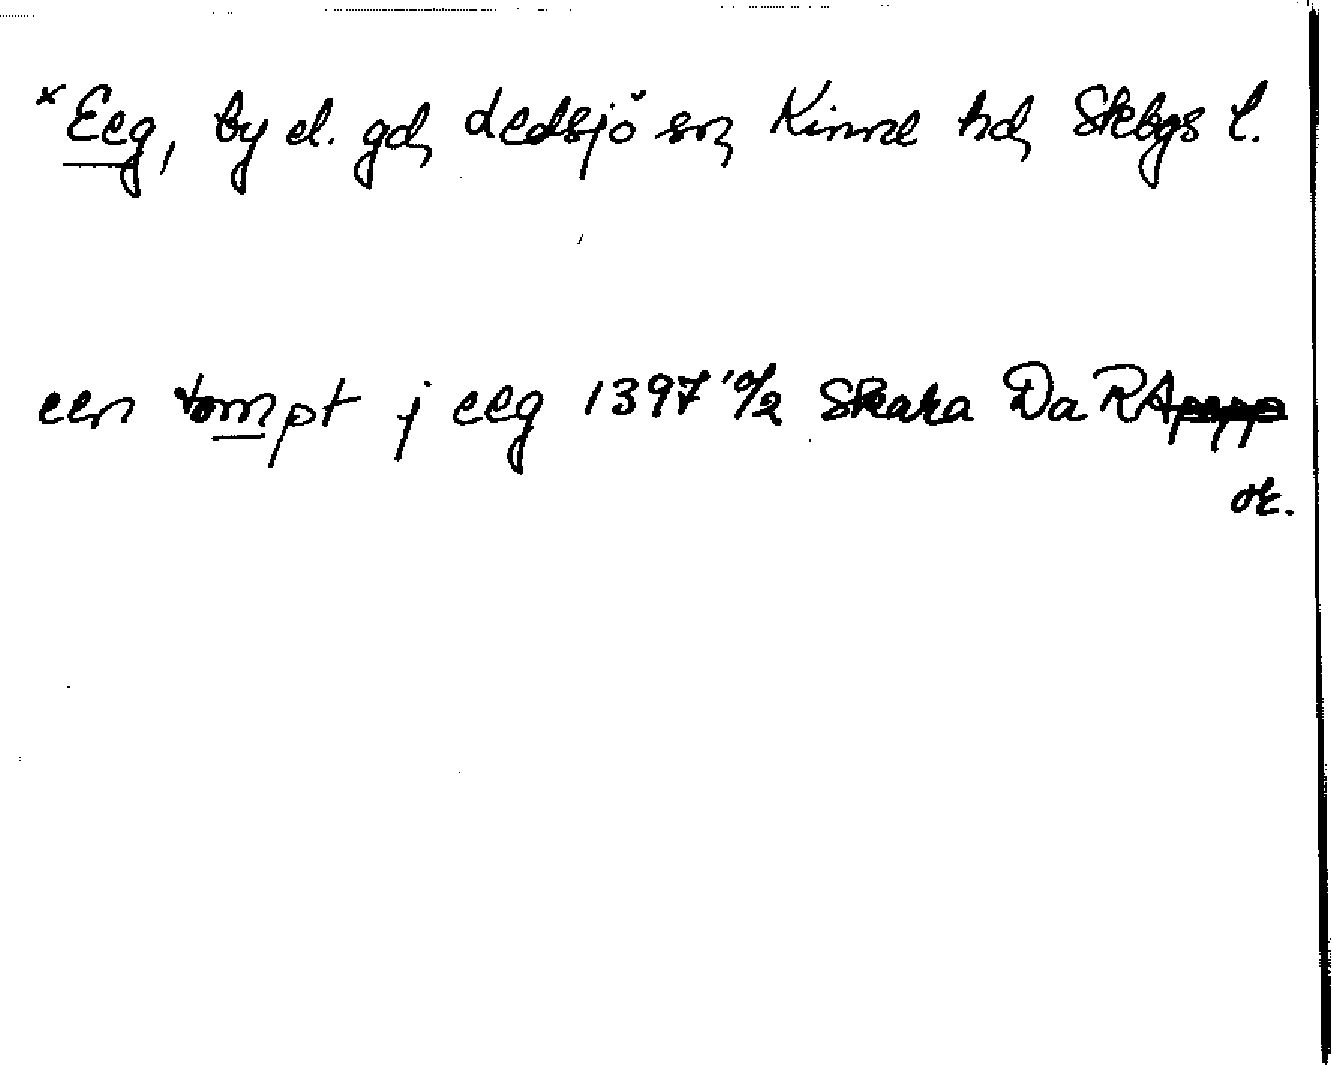 × Eeg, by el. gd, Ledsjö sn, Kinne hd, Skbgs l.
een tompt j eeg 1397 10/2 Skara Da RA
or.